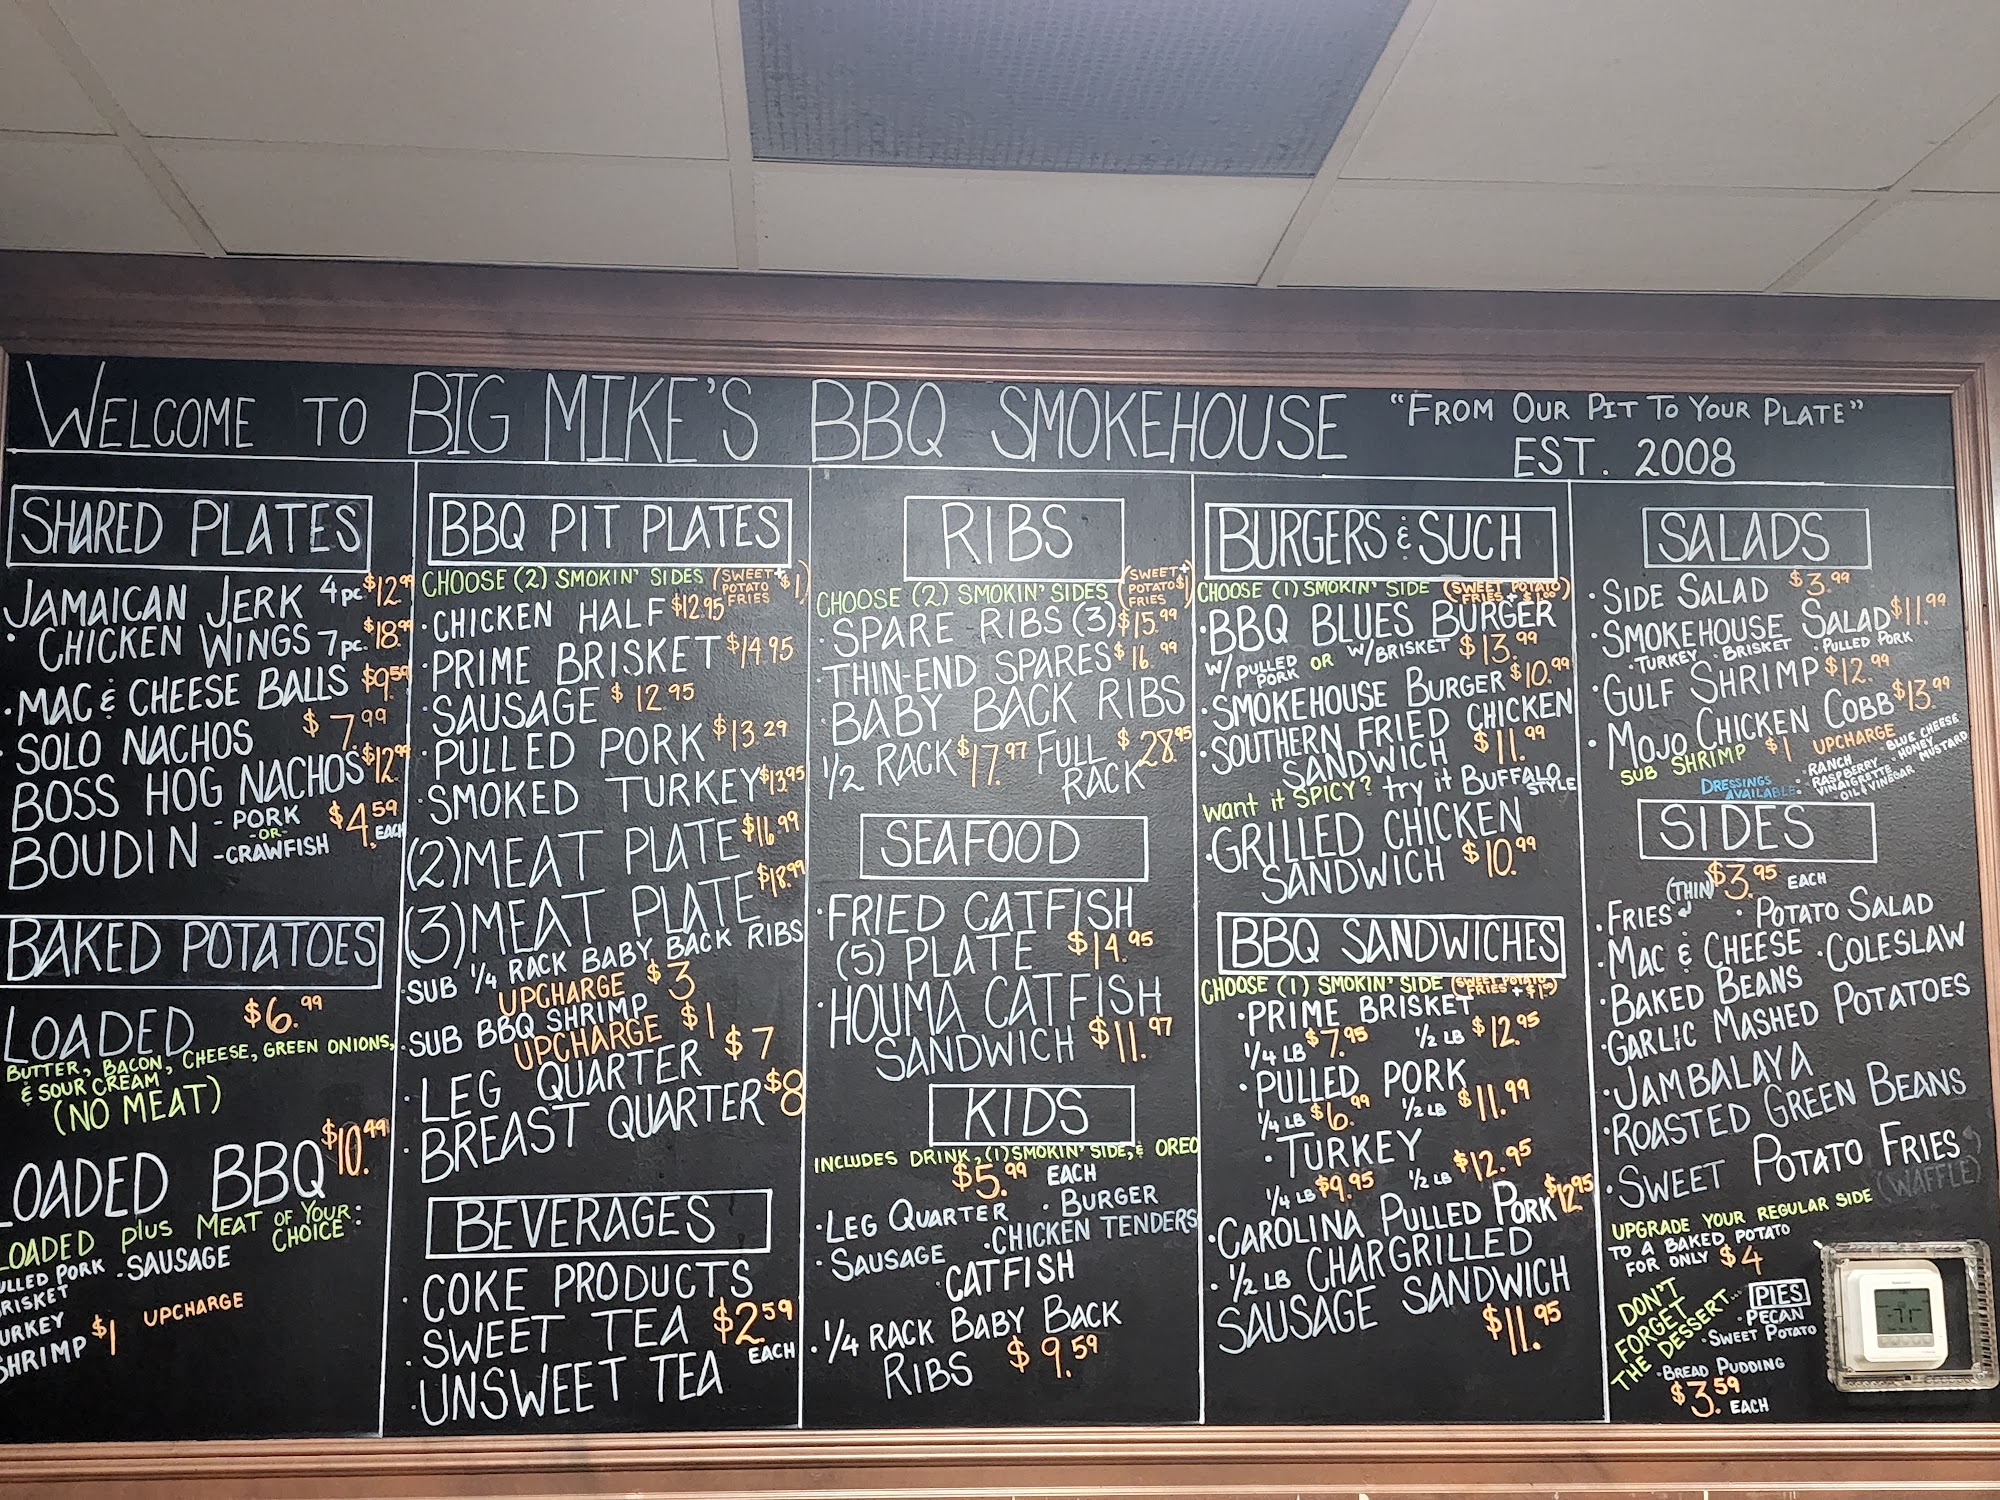 WELCOME TO BIG MIKE'S BBQ SMOKEHOUSE "FROM OUR PIT TO YOUR PLATE"
EST. 2008
SHARED PLATES
JAMAICAN JERK 4pc $12.99
• CHICKEN WINGS 7pc. $18.99
• MAC & CHEESE BALLS $9.59
• SOLO NACHOS $7.99
BOSS HOG NACHOS $12.99
BOUDIN - PORK -OR- - CRAWFISH $4.59 EACH
BAKED POTATOES
LOADED $6.99
BUTTER, BACON, CHEESE, GREEN ONIONS,
& SOUR CREAM
(NO MEAT)
LOADED BBQ $10.99
LOADED plus MEAT OF YOUR CHOICE:
PULLED PORK • SAUSAGE
BRISKET
TURKEY
SHRIMP $1 UPCHARGE
BBQ PIT PLATES
CHOOSE (2) SMOKIN' SIDES (SWEET POTATO FRIES + $1)
• CHICKEN HALF $12.95
• PRIME BRISKET $14.95
• SAUSAGE $12.95
• PULLED PORK $13.29
• SMOKED TURKEY $13.95
(2) MEAT PLATE $16.99
(3) MEAT PLATE $18.99
• SUB 1/4 RACK BABY BACK RIBS
UPCHARGE $3
• SUB BBQ SHRIMP
UPCHARGE $1
• LEG QUARTER $7
• BREAST QUARTER $8
BEVERAGES
• COKE PRODUCTS
• SWEET TEA $2.59 EACH
• UNSWEET TEA
RIBS
CHOOSE (2) SMOKIN' SIDES (SWEET POTATO FRIES + $1)
• SPARE RIBS (3) $15.99
• THIN-END SPARES $16.99
• BABY BACK RIBS
1/2 RACK $17.97 FULL RACK $28.95
SEAFOOD
• FRIED CATFISH
(5) PLATE $14.95
• HOUMA CATFISH
SANDWICH $11.97
KIDS
INCLUDES DRINK, (1) SMOKIN' SIDE, & OREO
$5.99 EACH
• LEG QUARTER • BURGER
• SAUSAGE • CHICKEN TENDERS
• CATFISH
• 1/4 RACK BABY BACK
RIBS $9.59
BURGERS & SUCH
CHOOSE (1) SMOKIN' SIDE (SWEET POTATO FRIES + $1.00)
• BBQ BLUES BURGER
W/ PULLED PORK OR W/ BRISKET $13.99
• SMOKEHOUSE BURGER $10.99
• SOUTHERN FRIED CHICKEN
SANDWICH $11.99
Want it SPICY? try it BUFFALO STYLE
• GRILLED CHICKEN
SANDWICH $10.99
BBQ SANDWICHES
CHOOSE (1) SMOKIN' SIDE (SWEET POTATO FRIES + $1.00)
• PRIME BRISKET
1/4 LB $7.95 1/2 LB $12.95
• PULLED PORK
1/4 LB $6.99 1/2 LB $11.99
• TURKEY
1/4 LB $9.95 1/2 LB $12.95
• CAROLINA PULLED PORK $12.95
• 1/2 LB CHARGRILLED
SAUSAGE SANDWICH
$11.95
SALADS
• SIDE SALAD $3.99
• SMOKEHOUSE SALAD $11.99
• TURKEY • BRISKET • PULLED PORK
• GULF SHRIMP $12.99
• MOJO CHICKEN COBB $13.99
SUB SHRIMP $1 UPCHARGE
DRESSINGS AVAILABLE:
• RANCH • BLUE CHEESE
• RASPBERRY VINAIGRETTE • HONEY MUSTARD
• OIL & VINEGAR
SIDES
$3.95 EACH
• FRIES (THIN) • POTATO SALAD
• MAC & CHEESE • COLESLAW
• BAKED BEANS
• GARLIC MASHED POTATOES
• JAMBALAYA
• ROASTED GREEN BEANS
• SWEET POTATO FRIES
(WAFFLE)
UPGRADE YOUR REGULAR SIDE
TO A BAKED POTATO
FOR ONLY $4
DON'T FORGET THE DESSERT...
PIES
• PECAN
• SWEET POTATO
• BREAD PUDDING
$3.59 EACH